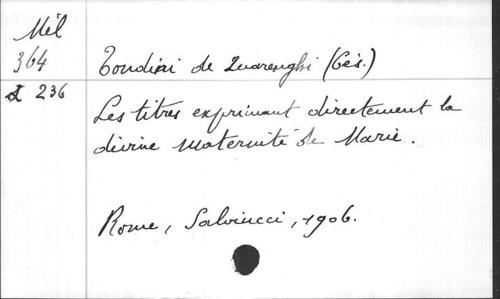 Mél
364
236
Tondini de Quarenghi (Cés.)
Les titres exprimant directement la
divine maternité de Marie.
Rome, Salviucci, 1906.